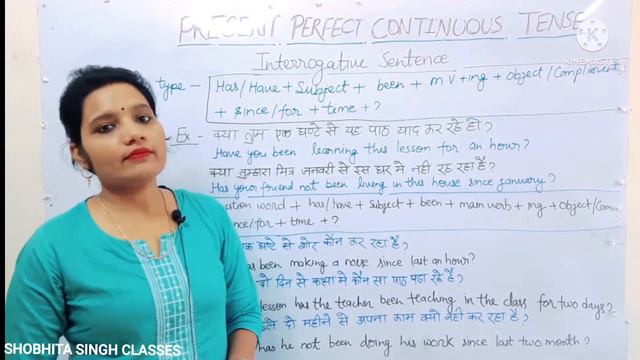 PRESENT PERFECT CONTINUOUS TENSE
Interrogative Sentence
type - Has/Have + Subject + been + m.V+ing + object/Compliment
+ Since/for + time + ?
Ex - क्या तुम एक घण्टे से यह पाठ याद कर रहे हो?
Have you been learning this lesson for an hour?
क्या तुम्हारा मित्र जनवरी से इस घर मे नही रह रहा है?
Has your friend not been living in this house since january?
estion word + has/have + Subject + been + main verb + ing + object/Com
nce/for + time + ?
क घण्टे से शोर कौन कर रहा है?
as been making a noise since last an hour?
दो दिन से कक्षा मे कौन सा पाठ पढा रहे है?
lesson has the teacher been teaching in the class for two days?
ले दो महीने से अपना काम क्यो नही कर रहा है?
has he not been doing his work since last two month?
KINEMASTER
SHOBHITA SINGH CLASSES